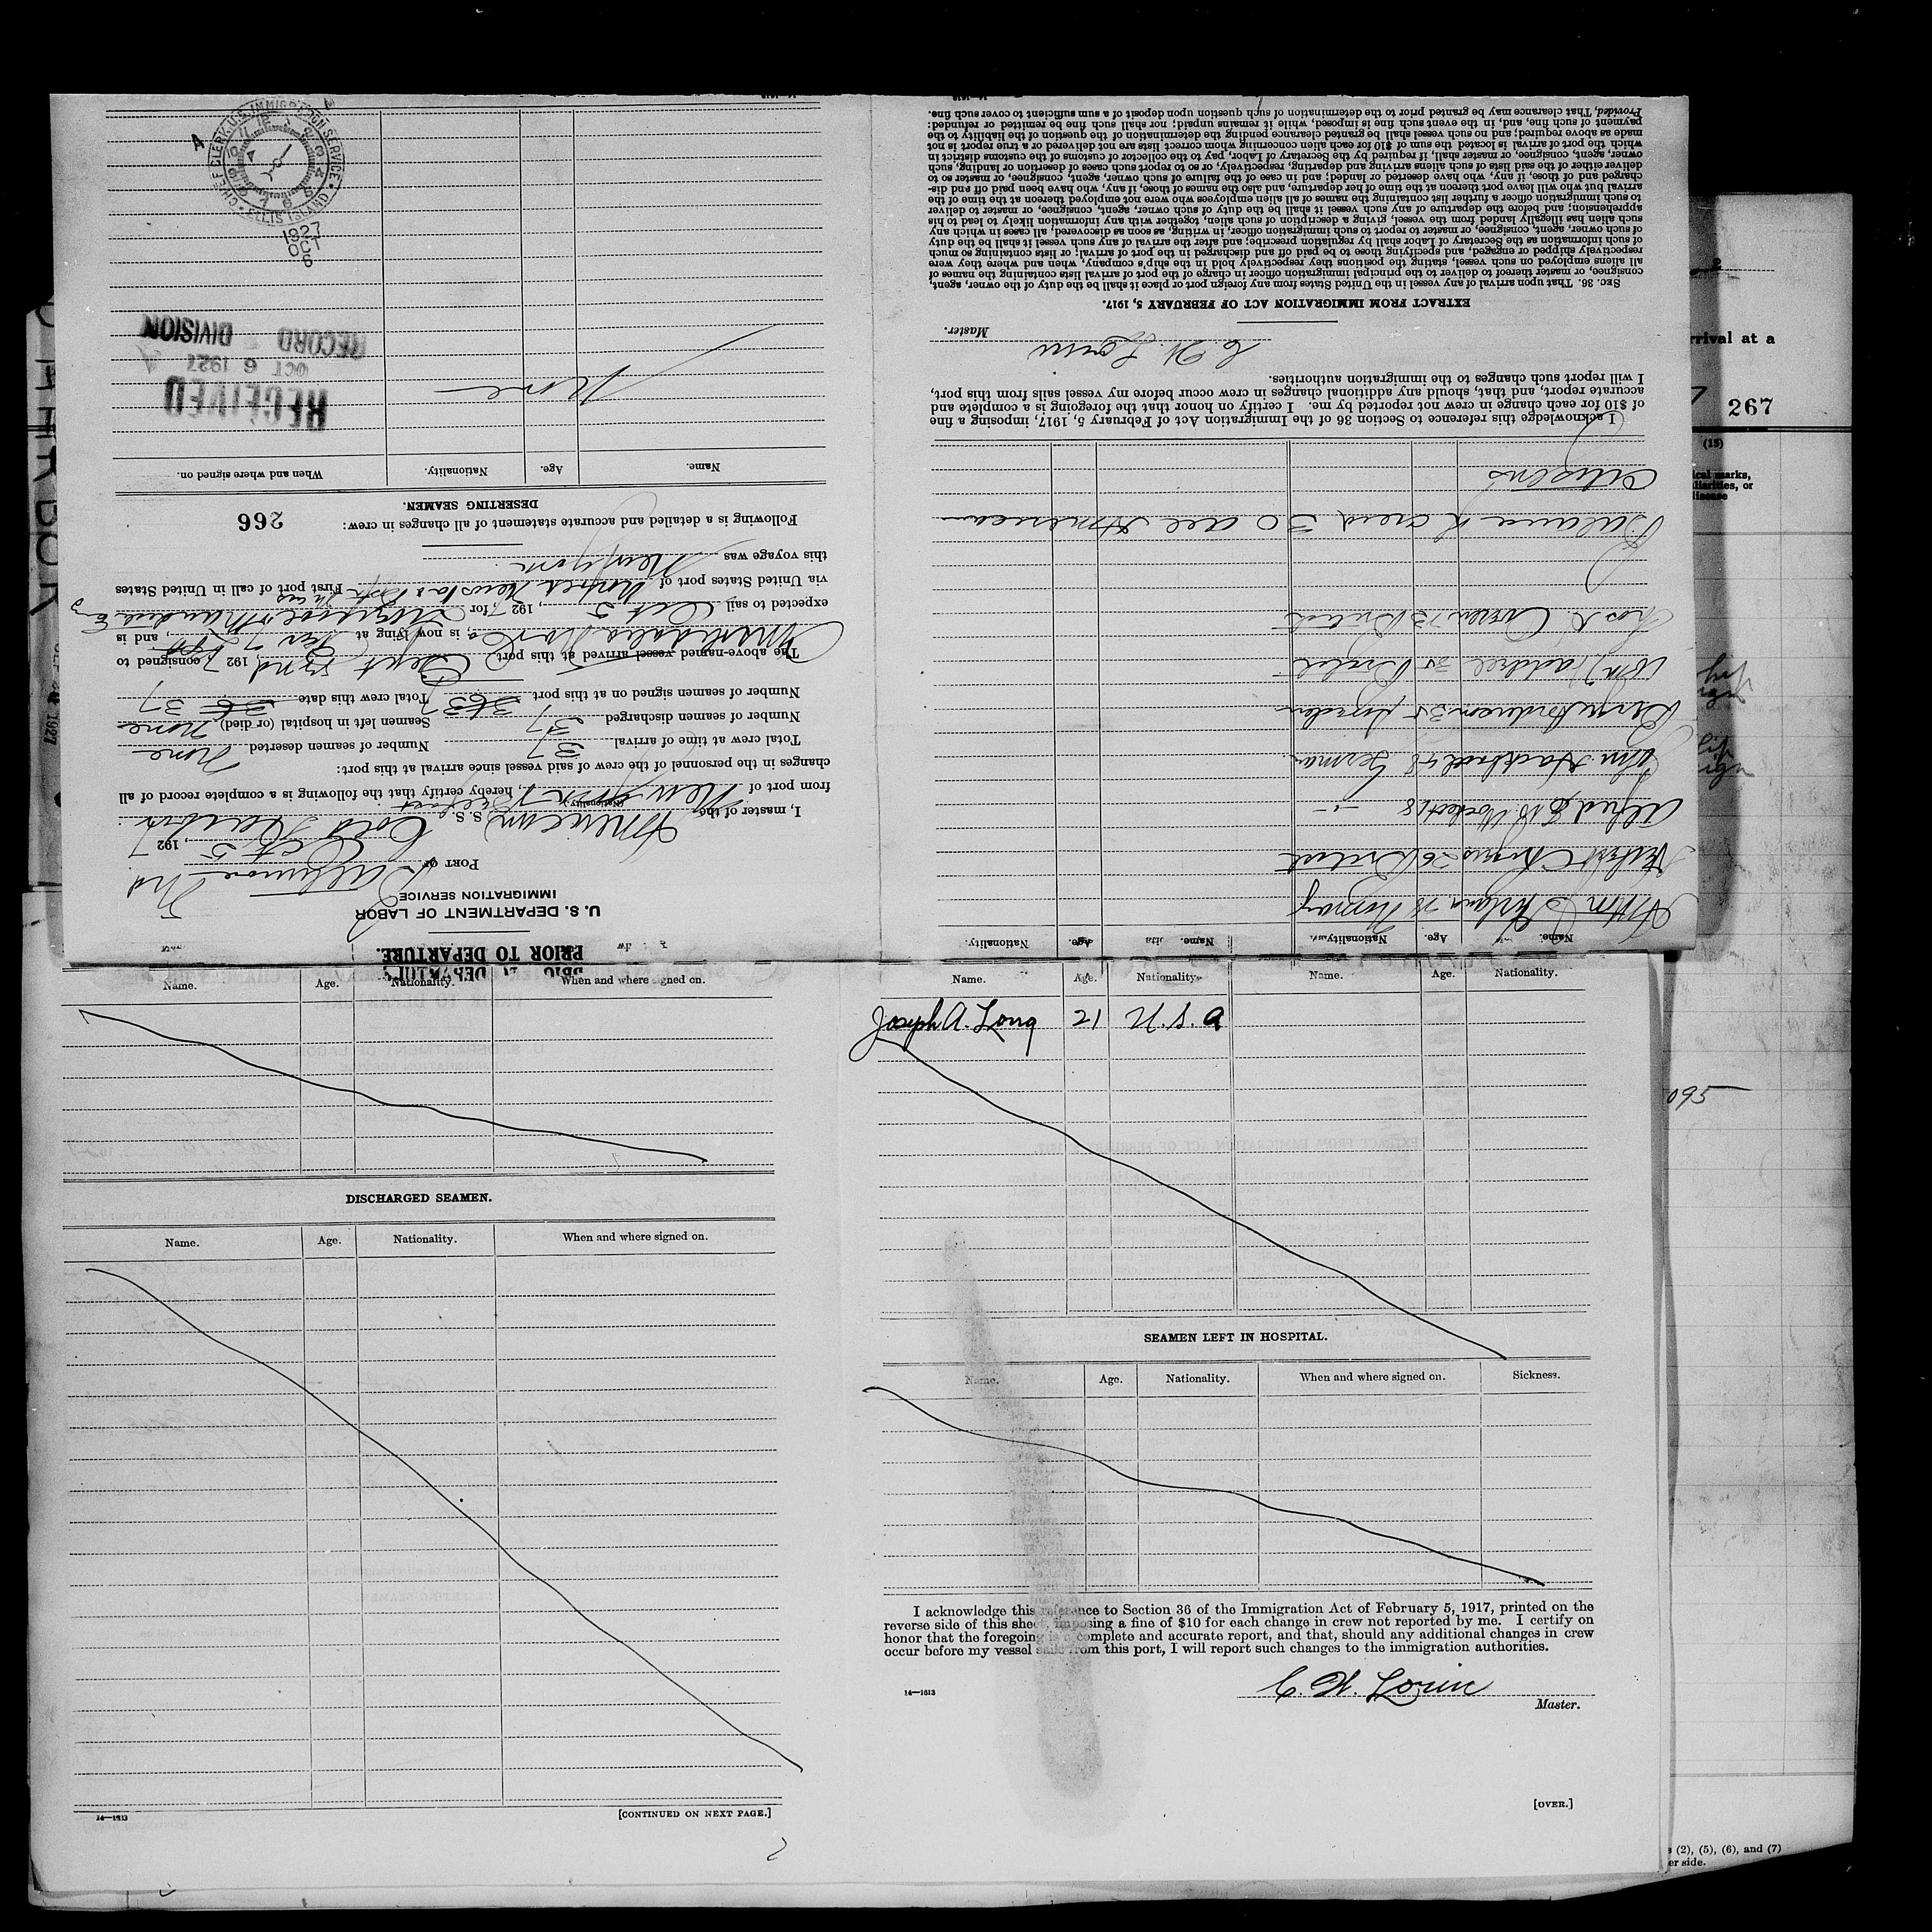 PRIOR TO DEPARTURE.
U. S. DEPARTMENT OF LABOR
IMMIGRATION SERVICE
PORT OF Baltimore Md
Oct 5, 1927
I, master of the American S. S. Cold Harbor
(Nationality.)
from port of Belfast, hereby certify that the following is a complete record of all
changes in the personnel of the crew of said vessel since arrival at this port:
Total crew at time of arrival 37 Number of seamen deserted None
Number of seamen discharged 37 Seamen left in hospital (or died) None
Number of seamen signed on at this port 37 Total crew this date 36 37
The above-named vessel arrived at this port Sept 22nd, 1927, consigned to
, is now lying at Pier 7, and is
expected to sail Oct 5, 1927, for
via United States port of First port of call in United States
this voyage was New York
Following is a detailed and accurate statement of all changes in crew:
266
DESERTING SEAMEN.
Name. Age. Nationality. When and where signed on.
None
RECEIVED
OCT 6 1927
RECORD DIVISION
CHIEF CLERK, U.S. IMMIGRATION SERVICE • ELLIS ISLAND •
1927
OCT
6
Name. Age. Nationality. Name. Age. Nationality.
Norway
Herbert 26
Alfred 18
John 48 German
35
Wm 35
Thos
Balance of crew 30 all American
Citizens
I acknowledge this reference to Section 36 of the Immigration Act of February 5, 1917, imposing a fine
of $10 for each change in crew not reported by me. I certify on honor that the foregoing is a complete and
accurate report, and that, should any additional changes in crew occur before my vessel sails from this port,
I will report such changes to the immigration authorities.
C. W. Lorin
Master.
EXTRACT FROM IMMIGRATION ACT OF FEBRUARY 5, 1917.
SEC. 36. That upon arrival of any vessel in the United States from any foreign port or place it shall be the duty of the owner, agent,
consignee, or master thereof to deliver to the principal immigration officer in charge of the port of arrival lists containing the names of
all aliens employed on such vessel, stating the positions they respectively hold in the ship's company, when and where they were
respectively shipped or engaged, and specifying those to be paid off and discharged in the port of arrival; or lists containing so much
of such information as the Secretary of Labor shall by regulation prescribe; and after the arrival of any such vessel it shall be the duty
of such owner, agent, consignee, or master to report to such immigration officer, in writing, as soon as discovered, all cases in which any
such alien has illegally landed from the vessel, giving a description of such alien, together with any information likely to lead to his
apprehension; and before the departure of any such vessel it shall be the duty of such owner, agent, consignee, or master to deliver
to such immigration officer a further list containing the names of all alien employees who were not employed thereon at the time of the
arrival but who will leave port thereon at the time of her departure, and also the names of those, if any, who have been paid off and dis-
charged and of those, if any, who have deserted or landed; and in case of the failure of such owner, agent, consignee, or master so to
deliver either of the said lists of such aliens arriving and departing, respectively, or so to report such cases of desertion or landing, such
owner, agent, consignee, or master shall, if required by the Secretary of Labor, pay to the collector of customs of the customs district in
which the port of arrival is located the sum of $10 for each alien concerning whom correct lists are not delivered or a true report is not
made as above required; and no such vessel shall be granted clearance pending the determination of the question of the liability to the
payment of such fine, and, in the event such fine is imposed, while it remains unpaid; nor shall such fine be remitted or refunded:
Provided, That clearance may be granted prior to the determination of such question upon deposit of a sum sufficient to cover such fine.
Name. Age. Nationality. When and where signed on.
DISCHARGED SEAMEN.
Name. Age. Nationality. When and where signed on.
14—1613
[CONTINUED ON NEXT PAGE.]
Name. Age. Nationality. Name. Age. Nationality.
Joseph A. Long 21 U. S. A
SEAMEN LEFT IN HOSPITAL.
Name. Age. Nationality. When and where signed on. Sickness.
I acknowledge this reference to Section 36 of the Immigration Act of February 5, 1917, printed on the
reverse side of this sheet, imposing a fine of $10 for each change in crew not reported by me. I certify on
honor that the foregoing is a complete and accurate report, and that, should any additional changes in crew
occur before my vessel sails from this port, I will report such changes to the immigration authorities.
C. W. Lorin
14—1613
Master.
[OVER.]
rrival at a
267
(15)
ical marks,
liarities, or
disease
095
(2), (5), (6), and (7)
er side.